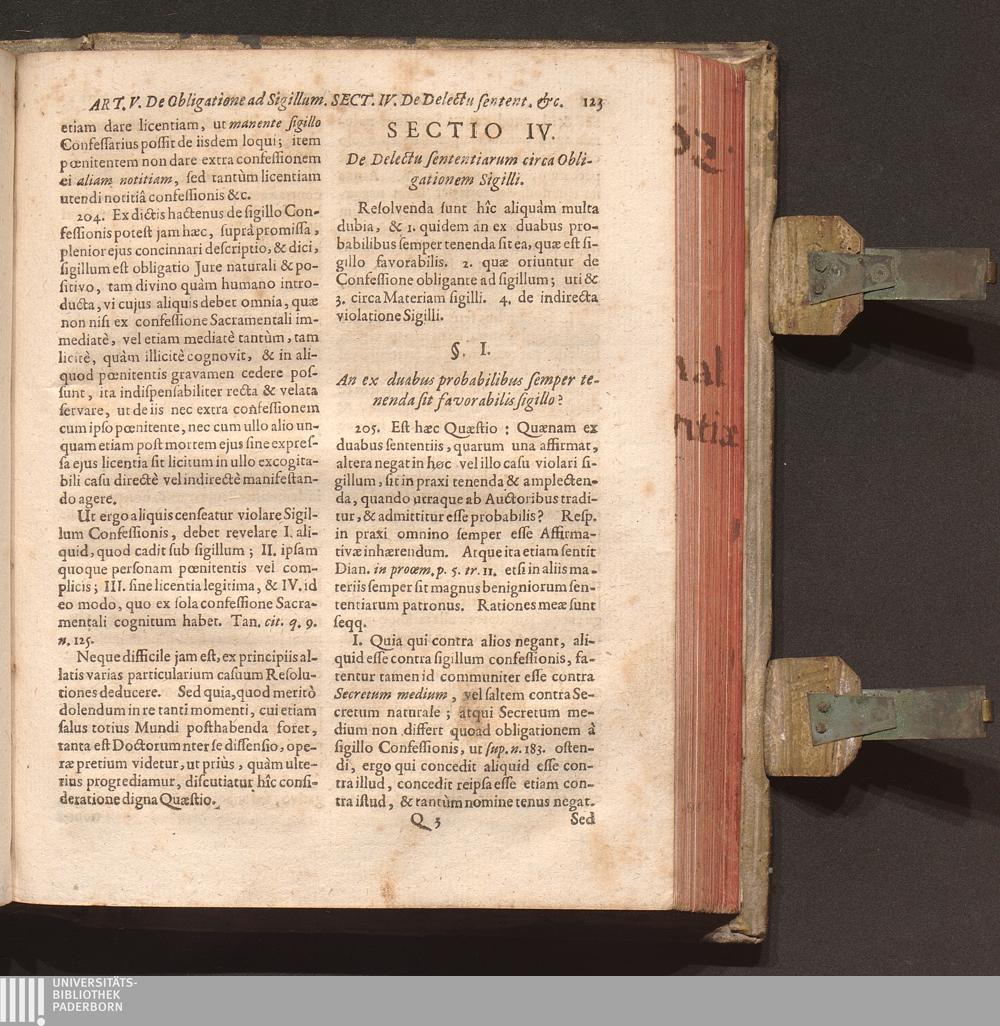 ART. V. De Obligatione ad Sigillum. SECT. IV. De Delectu sentent. &c. 123
etiam dare licentiam, ut manente sigillo
Confessarius possit de iisdem loqui; item
pœnitentem non dare extra confessionem
ei aliam notitiam, sed tantùm licentiam
utendi notitiâ confessionis &c.
204. Ex dictis hactenus de sigillo Con-
fessionis potest jam hæc, suprà promissa,
plenior ejus concinnari descriptio, & dici,
sigillum est obligatio Jure naturali & po-
sitivo, tam divino quàm humano intro-
ducta, vi cujus aliquis debet omnia, quæ
non nisi ex confessione Sacramentali im-
mediatè, vel etiam mediatè tantùm, tam
licitè, quàm illicitè cognovit, & in ali-
quod pœnitentis gravamen cedere pos-
sunt, ita indispensabiliter recta & velata
servare, ut de iis nec extra confessionem
cum ipso pœnitente, nec cum ullo alio un-
quam etiam post mortem ejus sine expres-
sa ejus licentia sit licitum in ullo excogita-
bili casu directè vel indirectè manifestan-
do agere.
Ut ergo aliquis censeatur violare Sigil-
lum Confessionis, debet revelare I. ali-
quid, quod cadit sub sigillum; II. ipsam
quoque personam pœnitentis vel com-
plicis; III. sine licentia legitima, & IV. id
eo modo, quo ex sola confessione Sacra-
mentali cognitum habet. Tan. cit. q. 9.
n. 125.
Neque difficile jam est, ex principiis al-
latis varias particularium casuum Resolu-
tiones deducere. Sed quia, quod meritò
dolendum in re tanti momenti, cui etiam
salus totius Mundi posthabenda foret,
tanta est Doctorum nter se dissensio, ope-
ræ pretium videtur, ut priùs, quàm ulte-
rius progrediamur, discutiatur hîc consi-
deratione digna Quæstio.
SECTIO IV.
De Delectu sententiarum circa Obli-
gationem Sigilli.
Resolvenda sunt hîc aliquàm multa
dubia, & 1. quidem an ex duabus pro-
babilibus semper tenenda sit ea, quæ est si-
gillo favorabilis. 2. quæ oriuntur de
Confessione obligante ad sigillum; uti &
3. circa Materiam sigilli. 4. de indirecta
violatione Sigilli.
§. I.
An ex duabus probabilibus semper te-
nenda sit favorabilis sigillo?
205. Est hæc Quæstio: Quænam ex
duabus sententiis, quarum una affirmat,
altera negat in hoc vel illo casu violari si-
gillum, sit in praxi tenenda & amplecten-
da, quando utraque ab Auctoribus tradi-
tur, & admittitur esse probabilis? Resp.
in praxi omnino semper esse Affirma-
tivæ inhærendum. Atque ita etiam sentit
Dian. in proœm. p. 5. tr. 11. etsi in aliis ma-
teriis semper sit magnus benigniorum sen-
tentiarum patronus. Rationes meæ sunt
seqq.
I. Quia qui contra alios negant, ali-
quid esse contra sigillum confessionis, fa-
tentur tamen id communiter esse contra
Secretum medium, vel saltem contra Se-
cretum naturale; atqui Secretum me-
dium non differt quoad obligationem à
sigillo Confessionis, ut sup. n. 183. osten-
di, ergo qui concedit aliquid esse con-
tra illud, concedit reipsa esse etiam con-
tra istud, & tantùm nomine tenus negat.
Q 3 Sed
UNIVERSITÄTS-
BIBLIOTHEK
PADERBORN